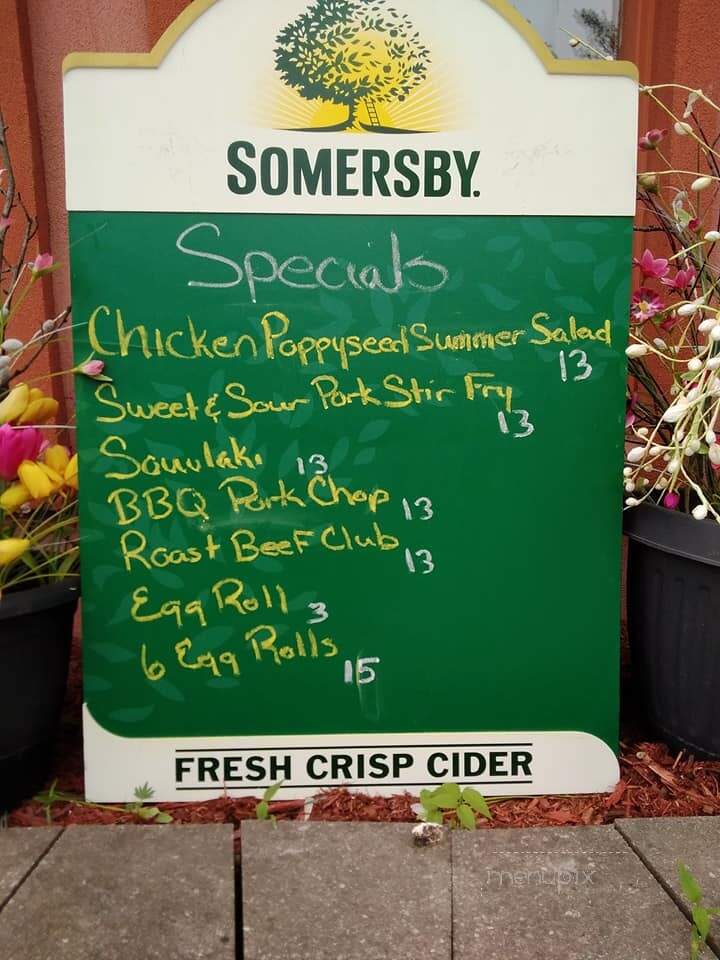 SOMERSBY.
Specials
Chicken Poppyseed Summer Salad
13
Sweet & Sour Pork Stir Fry
13
Souvlaki 13
BBQ Pork Chop 13
Roast Beef Club 13
Egg Roll 3
6 Egg Rolls 15
FRESH CRISP CIDER
menupix